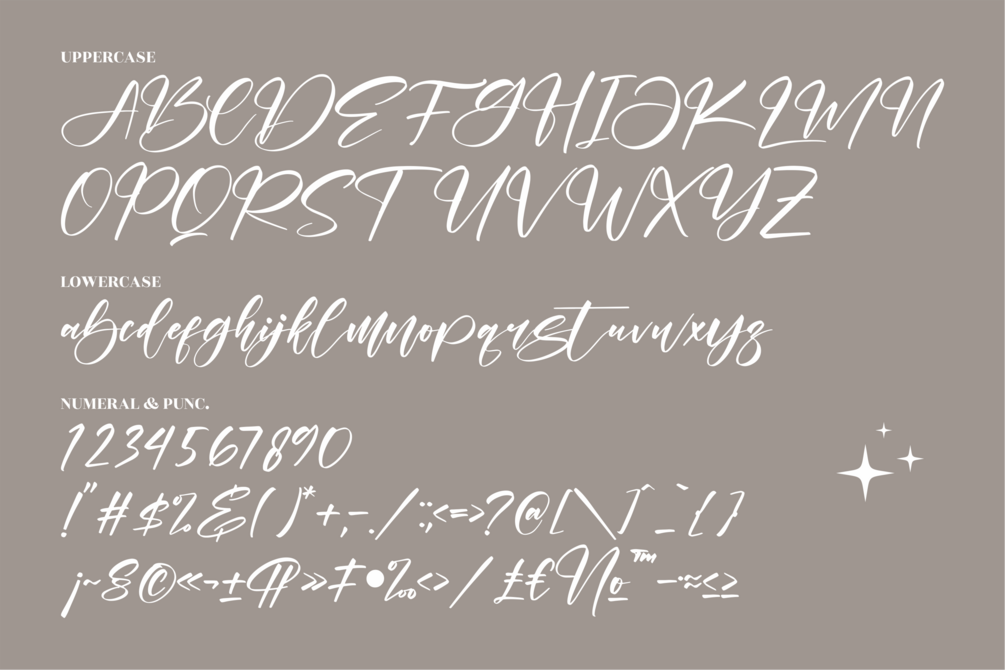 UPPERCASE
ABCDEFGHIJKLMN
OPQRSTUVWXYZ
LOWERCASE
abcdefghijklmnopqrstuvwxyz
NUMERAL & PUNC.
1234567890
!"#$%&()*+,-./:;<=>?@[\]^_`{}
¡~§©«¬±¶»‡•‰‹›⁄₤€№™−÷≈≤≥